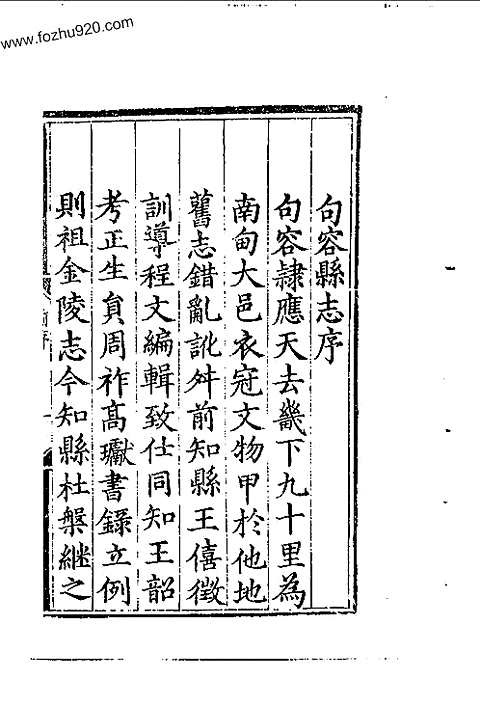 www.fozhu920.com
句容縣志序
句容隷應天去畿下九十里為
南甸大邑衣冠文物甲於他地
舊志錯亂訛舛前知縣王僖徵
訓導程文編輯致仕同知王韶
考正生貟周祚髙瓛書錄立例
則祖金陵志今知縣杜槃継之